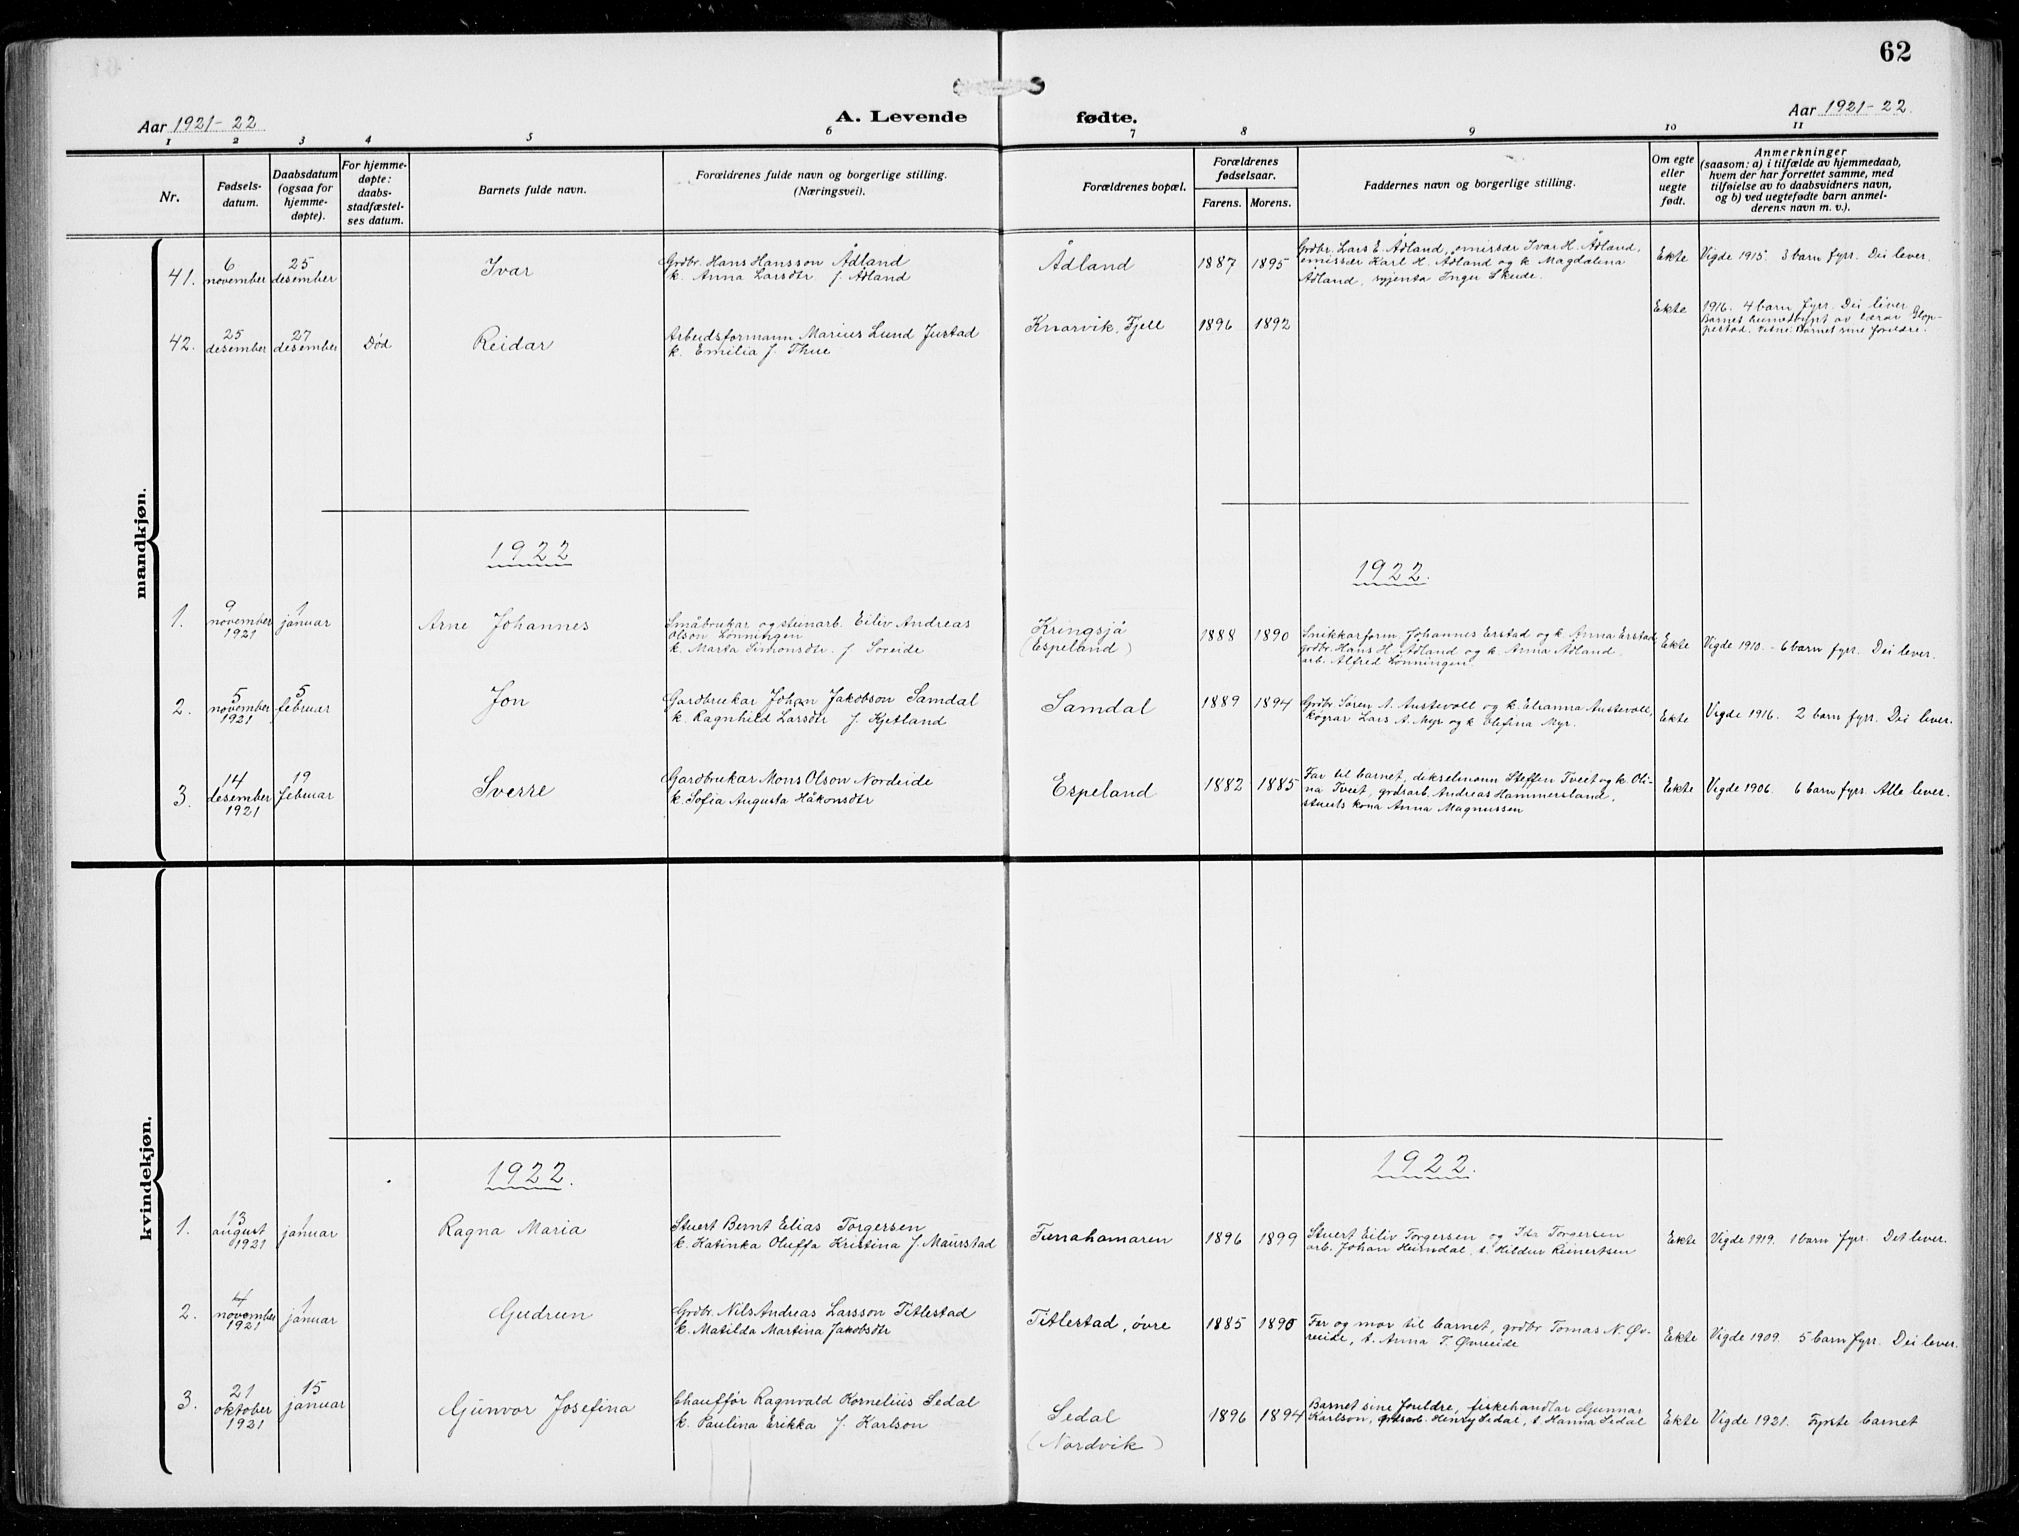 62
Aar 1921-22
A. Levende fødte.
Aar 1921-22.
1 2 3 4 5 6 7 8 9 10 11
Nr.
Fødsels-
datum.
Daabsdatum
(ogsaa for
hjemme-
døpte).
For hjemme-
døpte:
daabs-
stadfæstel-
ses datum.
Barnets fulde navn.
Forældrenes fulde navn og borgerlige stilling.
(Næringsvei).
Forældrenes bopæl.
Forældrenes
fødselsaar.
Farens. Morens.
Faddernes navn og borgerlige stilling.
Om egte
eller
uegte
født.
Anmerkninger
(saasom: a) i tilfælde av hjemmedaab,
hvem der har forrettet samme, med
tilføielse av to daabsvidners navn,
og b) ved uegtefødte barn anmel-
derens navn m. v.).
mandkjøn.
41.
6
november
25
desember
Ivar
Grdbr. Hans Hansson Ådland
k. Anna Larsdtr. f. Ådland
Ådland
1887 1895
Grdbr. Lars E. Ådland, emissær Ivar H. Ådland,
emissær Karl H. Ådland og k. Magdalena
Ådland, gjenta Inger Skeide.
Ekte
Vigde 1915. 3 barn fyrr. Dei lever.
42.
25
desember
27
desember
Død
Reidar
Arbeidsformann Marius Lund Justad
k. Emilia f. Thue
Knarvik, Fjell
1896 1892
Ekte
1916. 4 barn fyrr. Dei liver
Barnet heimedøypt av lærar Glop-
pestad. Vitne: Barnet sine foreldre.
1922
1922.
1.
9
november
1921
1
januar
Arne Johannes
Småbrukar og steinarb. Eiliv Andreas
Olson Lønningen
k. Marta Simonsdtr. f. Søreide
Kringsjå
(Espeland)
1888 1890
Snikkarform. Johannes Erstad og k. Anna Erstad
grdbr. Hans H. Ådland og k. Anna Ådland,
arb. Alfred Lønningen
Ekte
Vigde 1910. - 6 barn fyrr. Dei lever.
2.
5
november
1921
5
februar
Jon
Gardbrukar Johan Jakobson Samdal
k. Ragnhild Larsdtr f. Kjetland
Samdal
1889 1894
Grdbr. Søren A. Austevoll og k. Elianna Austevoll,
Lars A. Myr og k. Olefina Myr.
Ekte
Vigde 1916. 2 barn fyrr. Dei lever.
3.
14
desember
1921
19
februar
Sverre
Gardbrukar Mons Olson Nordeide
k. Sofia Augusta Håkonsdtr
Espeland
1882 1885
Far til barnet, dikselmann Steffen Tveit og k. Oli-
na Tveit, grdsarb. Andreas Hammersland,
stuerts kona Anna Magnussen
Ekte
Vigde 1906. 6 barn fyrr. Alle lever.
kvindekjøn.
1922.
1922.
1.
13
august
1921
1
januar
Ragna Maria
Stuert Bernt Elias Torgersen
k. Katinka Oluffa Kristina f. Maurstad
Tunahamaren
1896 1899
Stuert Eiliv Torgersen og Torgersen
arb. Johan Heimdal, t. Hildur Reinertsen
Ekte
Vigde 1919. 1 barn fyrr. Det lever.
2.
4
november
1921
1
januar
Gudrun
Grdbr. Nils Andreas Larsson Titlestad
k. Matilda Martina Jakobsdtr
Titlestad, øvre
1885 1890
Far og mor til barnet, grdbr Tomas N. Øv-
reeide, t. Anna T. Øvreeide
Ekte
Vigde 1909. 5 barn fyrr. Dei lever.
3.
21
oktober
1921
15
januar
Gunvor Josefina
Chauffør Ragnvald Kornelius Sedal
k. Paulina Erikka f. Karlson
Sedal
(Nordvik)
1896 1894
Barnet sine foreldre, fiskehandlar Gunnar
Karlson, grdsarb. Henry Sedal, t. Hanna Sedal
Ekte
Vigde 1921. Fyrste barnet